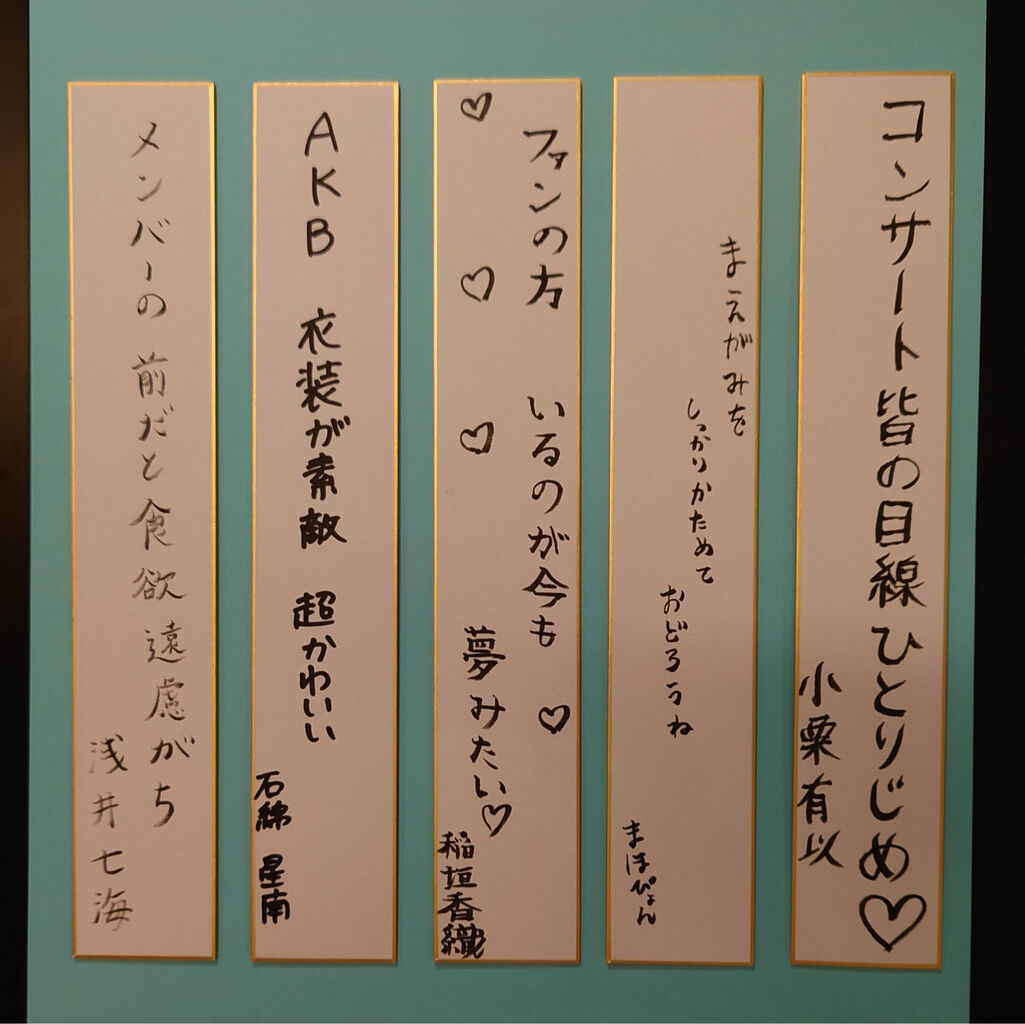 コンサート皆の目線ひとりじめ♡
小栗有以
まえがみを
しっかりかためて
おどろうね
まほぴょん
ファンの方 いるのが今も
夢みたい♡
稲垣香織
AKB 衣装が素敵 超かわいい
石綿 星南
メンバーの 前だと食欲遠慮がち
浅井七海